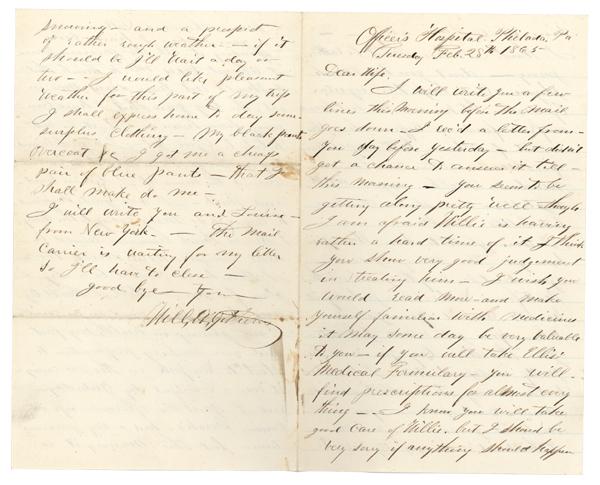 Officer's Hospital, Philada, Pa
Tuesday Feb. 28th 1865
Dear Wife,
I will write you a few
lines this Morning before the Mail
goes down. I rec'd a letter from
you day before yesterday - but didn't
get a chance to answer it till -
this Morning - You seem to be
getting along pretty well though
I am afraid Willie is having
rather a hard time of it I think
you show very good judgement
in treating him - I wish you
would read More and make
yourself familiar with medicines
it may some day be very valuable
to you - if you will take Ellis'
Medical Formulary - you will
find prescriptions for almost every
thing - I know you will take
good care of Willie, but I should be
very sorry if anything should happen
morning - and a prospect
of rather rough weather - if it
should be I'll wait a day or
two - I would like pleasant
weather for this part of my trip
I shall express home to day some
surplus clothing - My black pants
overcoat &c I got me a cheap
pair of blue pants - that I
shall make do me -
I will write you and Louise -
from New York - The Mail
Carrier is waiting for my letter
so I'll have to close -
good bye -